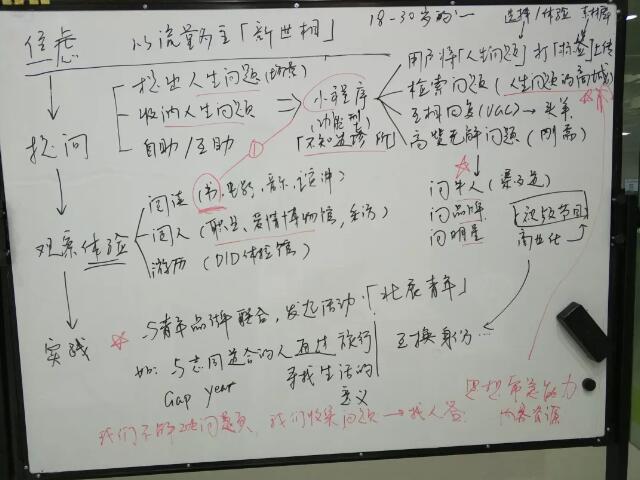 焦虑
以流量为主「新世相」
18-30岁的一
选择/体验
提出人生问题(场景)
收纳人生问题
自助/互助
小程序
(功能型)
「不知道诊所」
用户将「人生问题」打「标签」上传
检索问题(人生问题的商城)
互相回复(UGC)→
高赞无解问题(刚需)
提问
①
观察体验
阅读(书、电影、音乐、演讲)
阅人(职业、爱情博物馆,)
游历(DID体验馆)
问牛人
问品牌
问明星
视频节目
商业化
实践
与青年品牌联合,发起活动「北辰青年」
如:与志同道合的人通过旅行
Gap year
寻找生活的
意义
互换身份...
思想
内容资源
我们不解决问题,我们收集问题→找人答